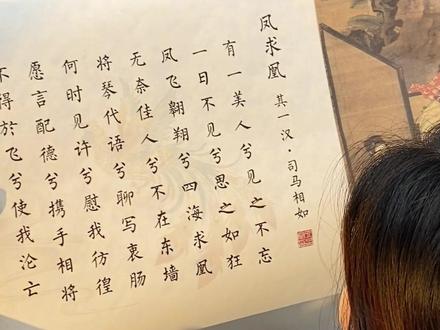 凤求凰
其一 汉·司马相如
有一美人兮见之不忘
一日不见兮思之如狂
凤飞翱翔兮四海求凰
无奈佳人兮不在东墙
将琴代语兮聊写衷肠
何时见许兮慰我彷徨
愿言配德兮携手相将
不得於飞兮使我沦亡